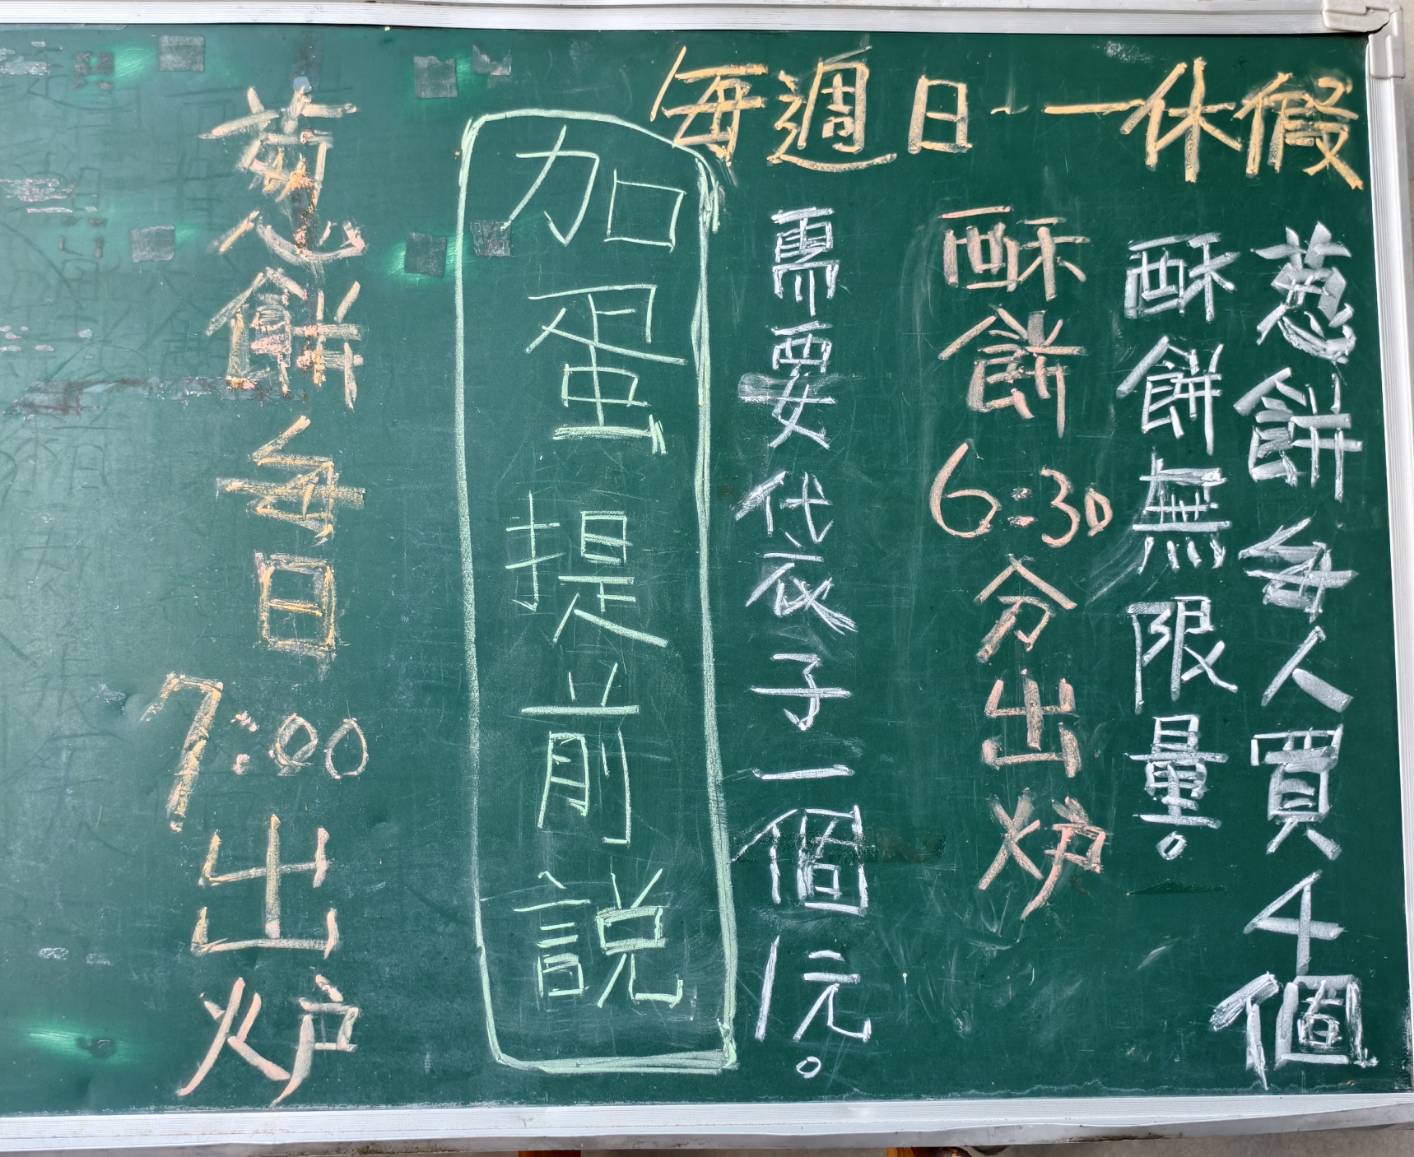 每週日、一休假
葱餅每人買4個
酥餅無限量。
酥餅6:30分出炉
需要袋子一個1元。
加蛋提前說
葱餅每日7:00出炉